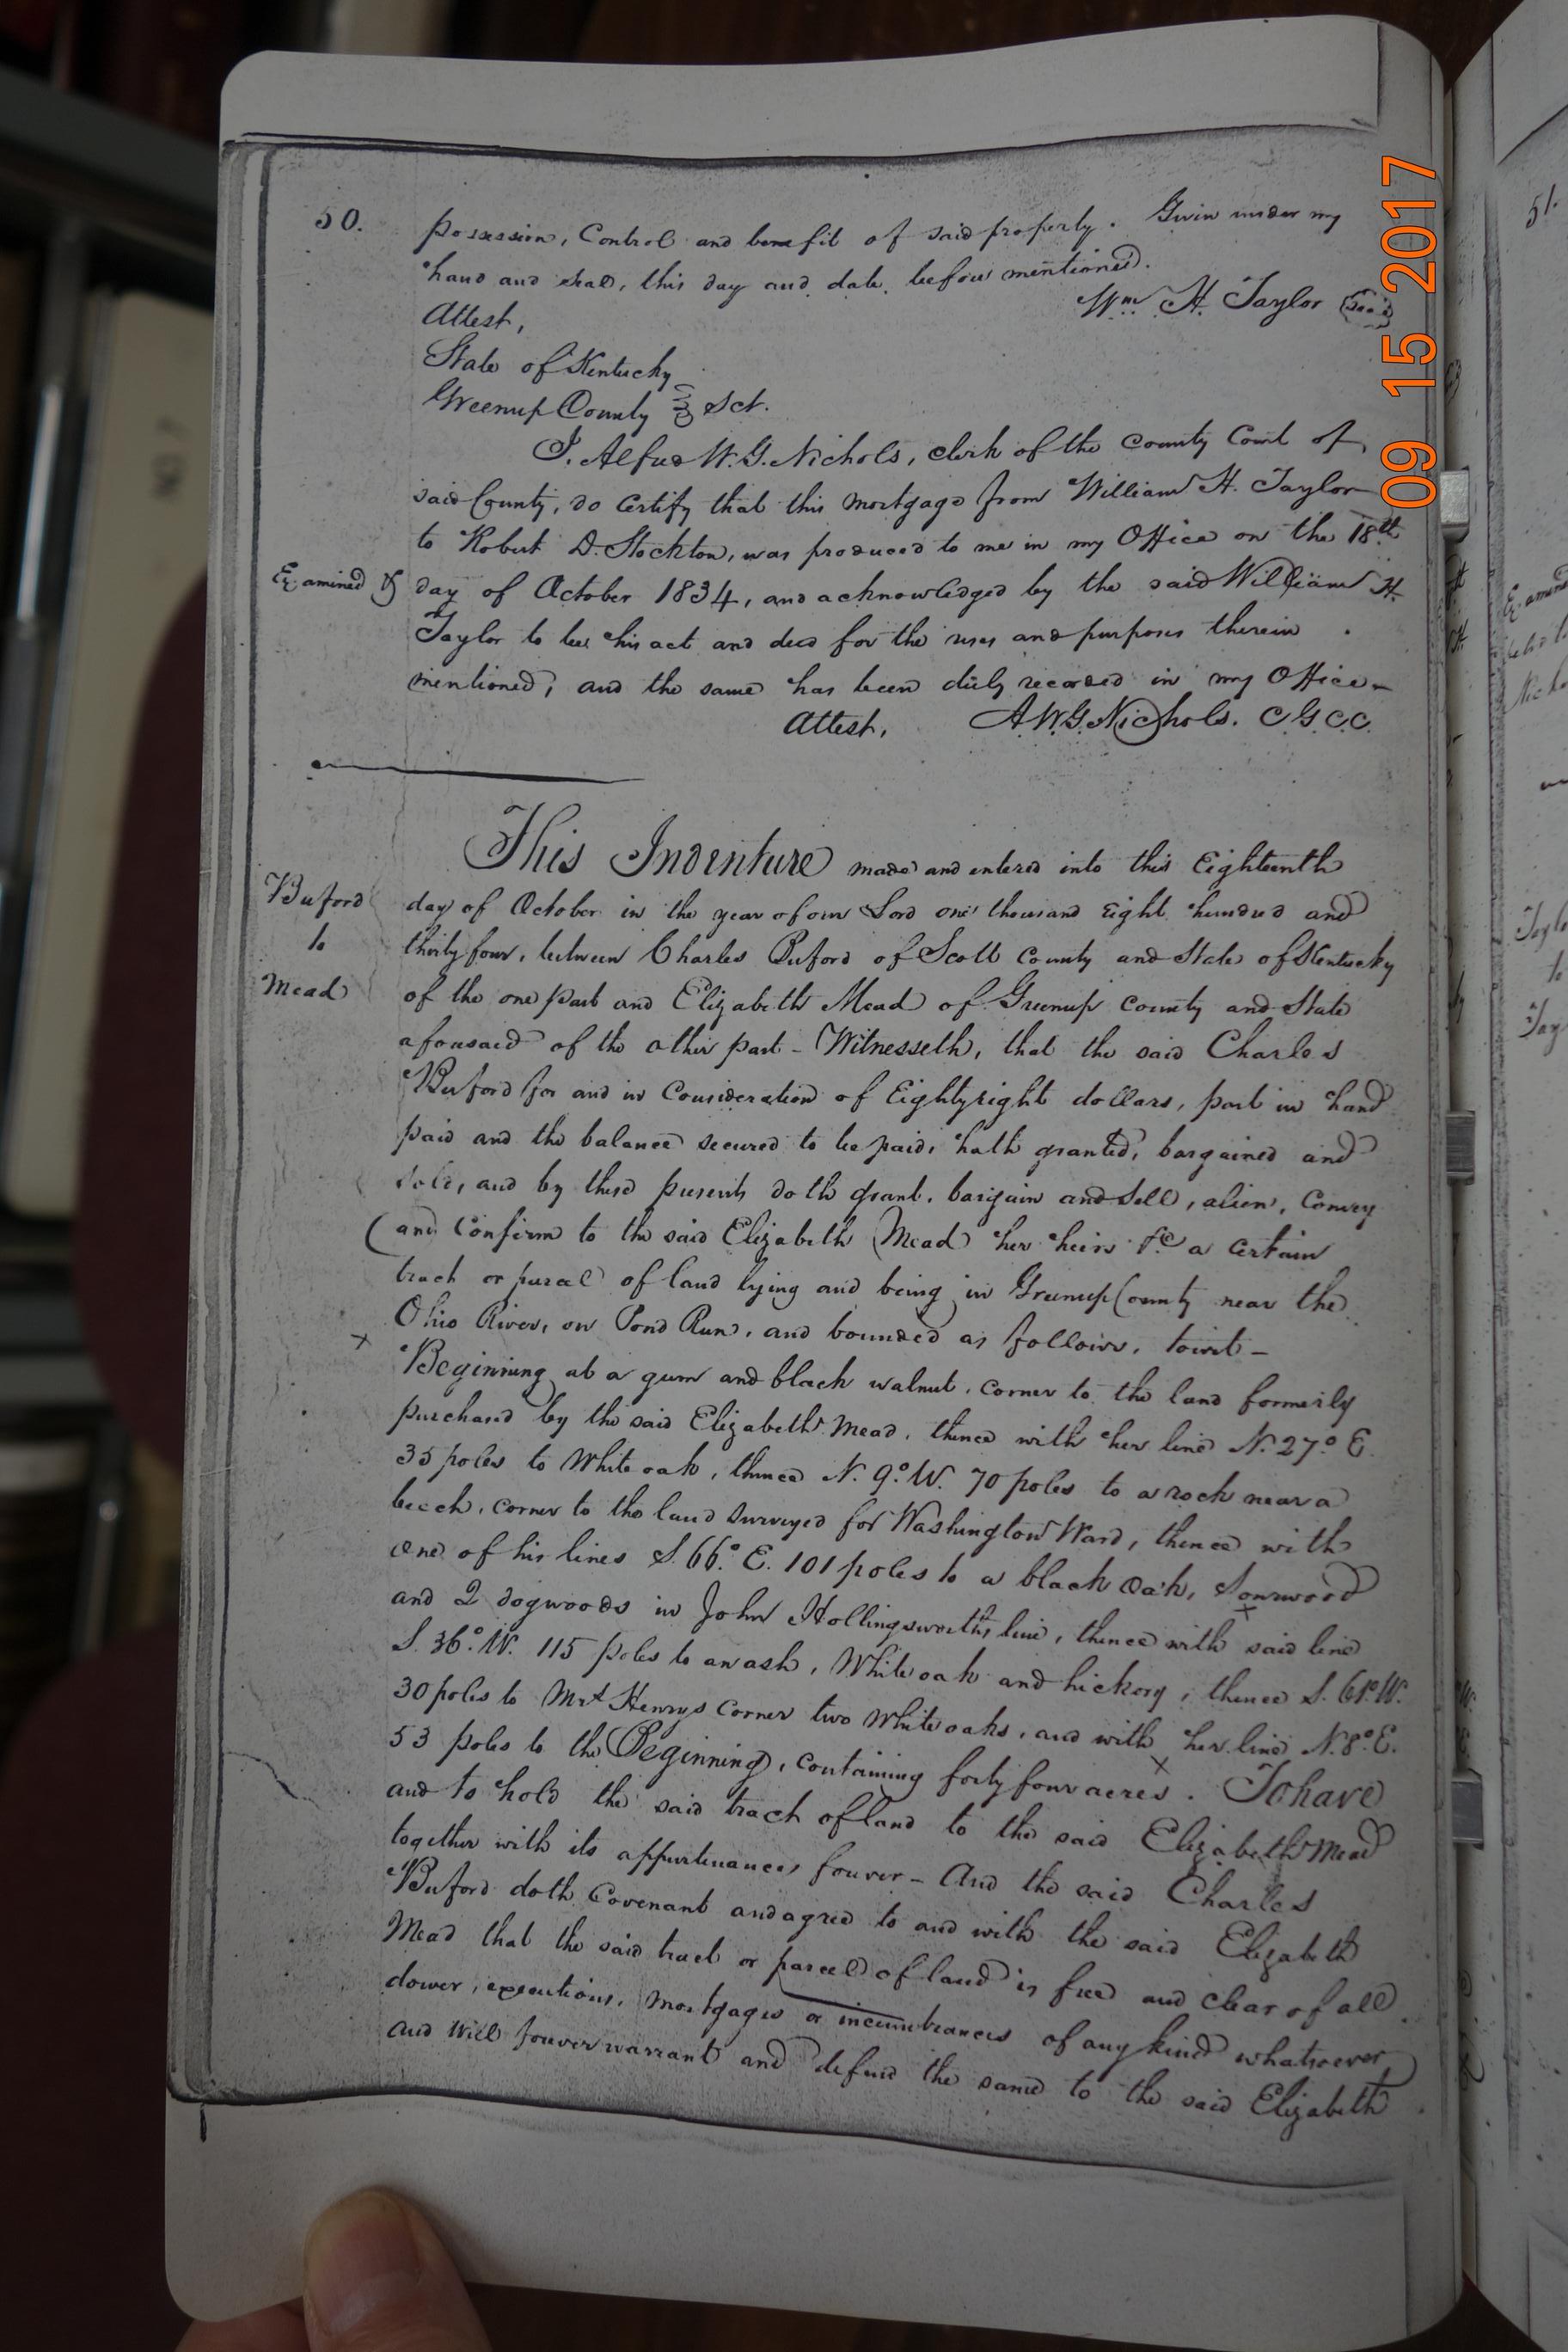 50.
possession, Control and benefit of said property. Given under my
hand and seal, this day and date before mentioned.
Wm. H. Taylor Seal
Attest,
State of Kentucky
Greenup County Sct.
I, Alfred W. G. Nichols, clerk of the County Court of
said County, do certify that this mortgage from William H. Taylor
to Robert D. Stockton, was produced to me in my Office on the 18th
Examined
day of October 1834, and acknowledged by the said William H.
Taylor to be his act and deed for the uses and purposes therein
mentioned, and the same has been duly recorded in my Office.
Attest, A.W.G. Nichols. C.G.C.C.
Buford
to
Mead
This Indenture made and entered into this Eighteenth
day of October in the year of our Lord one thousand eight hundred and
thirty four, between Charles Buford of Scott County and State of Kentucky
of the one part and Elizabeth Mead of Greenup County and State
aforesaid of the other part - Witnesseth, that the said Charles
Buford for and in Consideration of Eightyeight dollars, part in hand
paid and the balance secured to be paid, hath granted, bargained and
sold, and by these presents doth grant, bargain and sell, alien, Convey
and Confirm to the said Elizabeth Mead her heirs &c a certain
tract or parcel of land lying and being in Greenup County near the
Ohio River, on Pond Run, and bounded as follows, towit -
x
Beginning at a gum and black walnut, corner to the land formerly
purchased by the said Elizabeth Mead, thence with her line N. 27° E.
35 poles to White oak, thence N. 9° W. 70 poles to a rock near a
beech, corner to the land surveyed for Washington Ward, thence with
one of his lines S. 66° E. 101 poles to a black oak, Sourwood
and 2 dogwoods in John Hollingsworths line, thence with said line
S. 36° W. 115 poles to an ash, White oak and hickory, thence S. 61° W.
30 poles to Mrs Henrys corner two White oaks, and with her line N. 8° E.
53 poles to the Beginning, containing forty four acres. To have
and to hold the said tract of land to the said Elizabeth Mead
together with its appurtenances forever - And the said Charles
Buford doth Covenant and agree to and with the said Elizabeth
Mead that the said tract or parcel of land is free and clear of all
dower, executions, mortgages or incumbrances of any kind whatsoever
and will forever warrant and defend the same to the said Elizabeth
09 15 2017
51.
Taylo
to
Tay